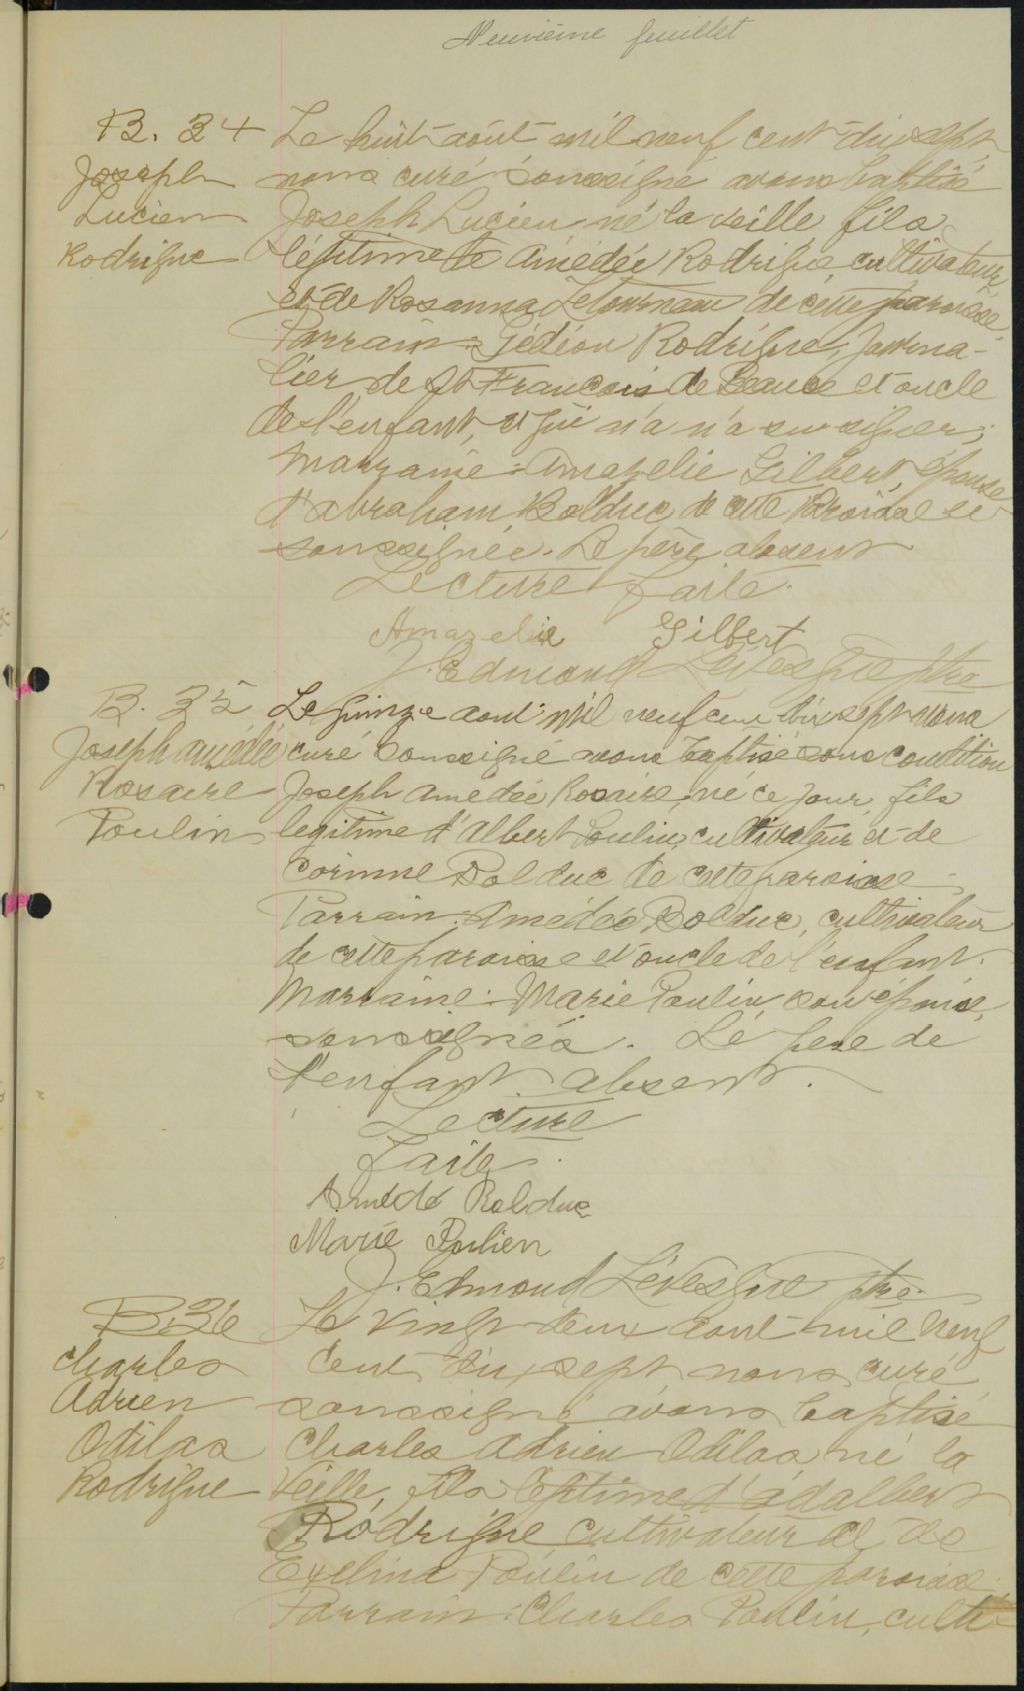 Neuvième feuillet
B. 34
Joseph
Lucien
Rodrigue
Le huit août mil neuf cent dix sept
nous curé soussigné avons baptisé
Joseph Lucien né la veille fils
légitime de Amédée Rodrigue, cultivateur
et de Rosanna Letourneau de cette paroisse.
Parrain: Gédéon Rodrigue, journa-
lier de St François de Beauce et oncle
de l'enfant, et qui n'a n'a su signer;
marraine: Amazelie Gilbert, épouse
d'Abraham Bolduc de cette Paroisse et
soussignée. Le père absent
Lecture faite.
Amazelie Gilbert
J. Edmond Lévesque ptre
B. 35
Joseph Amédée
Rosaire
Poulin
Le quinze aout mil neuf cent dix sept nous
curé soussigné avons baptisé sous condition
Joseph Amedée Rosaire, né ce jour, fils
legitime d'Albert Poulin, cultivateur et de
Corinne Bolduc de cette paroisse.
Parrain: Amédée Bolduc, cultivateur
de cette paroisse et oncle de l'enfant.
Marraine: Marie Poulin, son épouse,
soussignés. Le pere de
l'enfant absent.
Lecture
faite.
Amédé Bolduc
Marie Poulien
J. Edmond Lévesque ptre.
B. 36
Charles
Adrien
Odilas
Rodrigue
Le vingt deux aout mil neuf
cent dix sept nous curé
soussigné avons baptisé
Charles Adrien Odilas né la
veille, fils légitime d'Adalbert
Rodrigue cultivateur et de
Exelina Poulin de cette paroisse.
Parrain: Charles Poulin, culti-